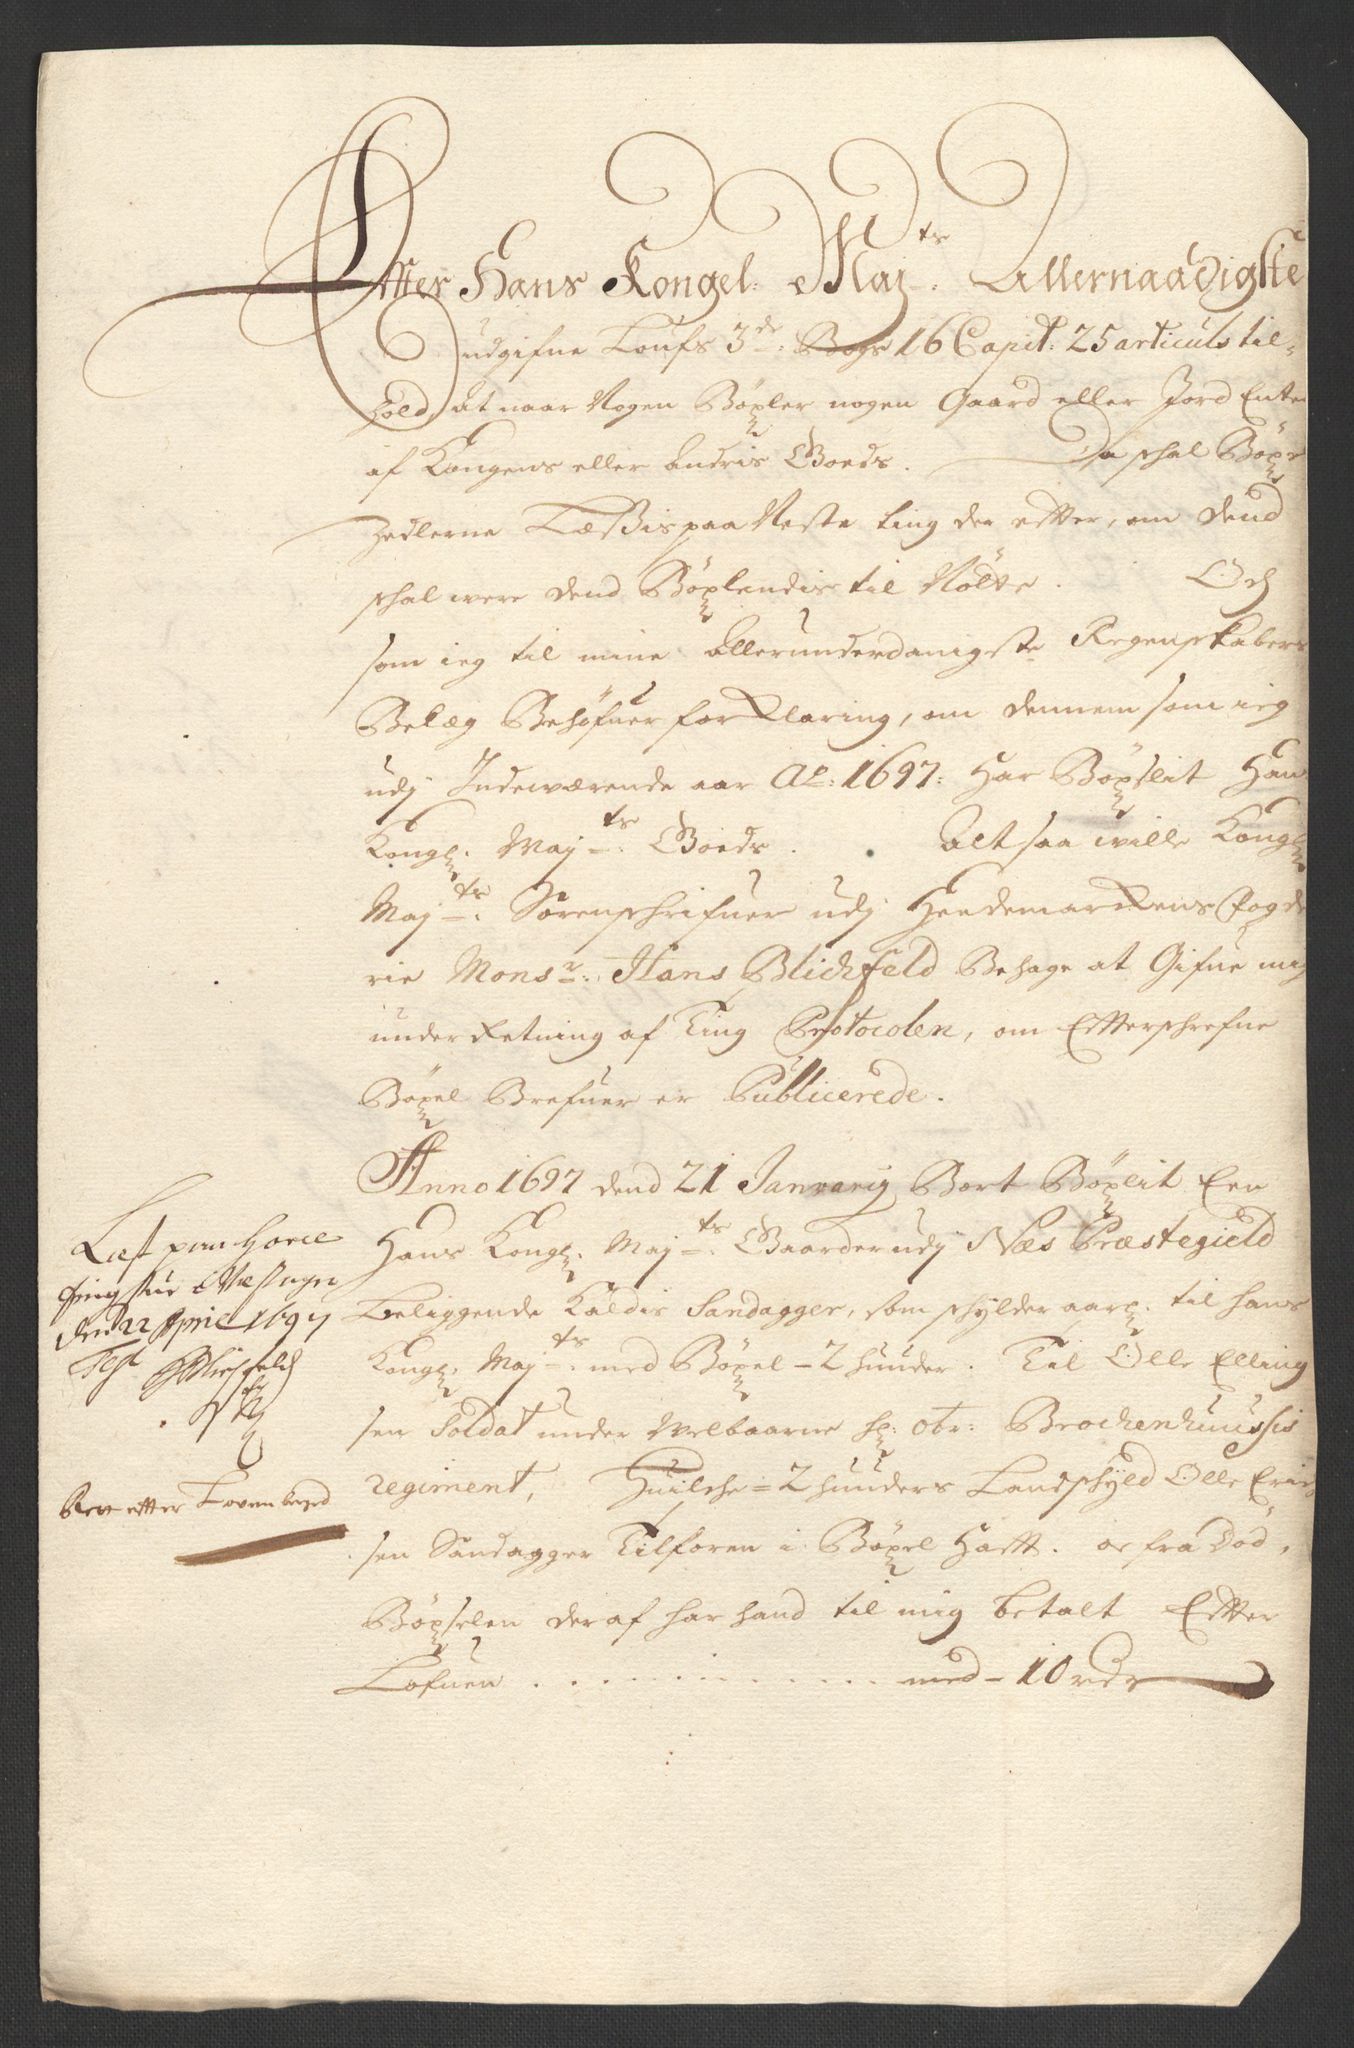 Efter Hans Kongel: Maj.ts Allernaadigste
udgifne Loufs 3de. Bogs 16 Capit: 25 articuls til-
hold, at naar Nogen Böxler nogen Gaard eller Jord Enten
af Kongens eller Andris Goeds. Da schal Böxel
Zedlerne Læsis paa Neste ting der efter, om Dend
schal were dend Böxlendis til Nötte. Och
som ieg til mine Allerunderdanigste Regenskabers
Belæg Behöfuer forKlaring, om dennem som ieg
udj Indewærende aar Ao: 1697: Har Böxslit Hans
Kongl. Maj.ts Goeds. Alt saa wille Kongl.
Maj.ts Sorenschrifuer udj HeedemarKens Fogde
rie Monsr. Hans Blichfeld Behage at Gifue mig
underRetning af Ting Protocolen, om Efterschrefne
Böxel Brefuer er Publicerede.
Anno 1697 dend 21 Janvarij Bort Böxlit Een
Hans Kongl. Maj.ts Gaarder udj Næs Præstegield
beliggende Kaldis Sandagger, som schylder aarl. til hans
Kongl. Maj.ts med Böxel - 2 hunder. Til Olle Elling
sen Soldat under Welbaarne hr: Obr: Brochenhuussis
regiment, Huilche = 2 hunders Landschyld Olle Erich
sen Sandagger Tilforen i Böxel Hafft. oc fra Död,
Böxselen der af har hand til mig betalt Efter
Lofuen . . . . . . . . . . . med - 10 rdr
Læst paa
den 22 April 1697
Test HBlichfeld
efter Loven